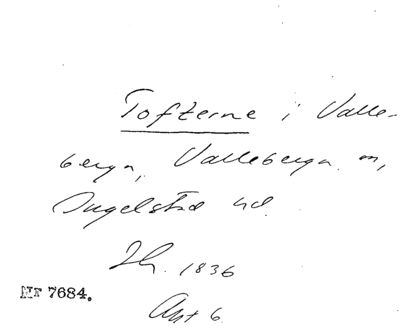 Tofterne i Valle-
berga, Valleberga sn,
Ingelstad hd.
Ih. 1836
Akt 6
NF 7684.